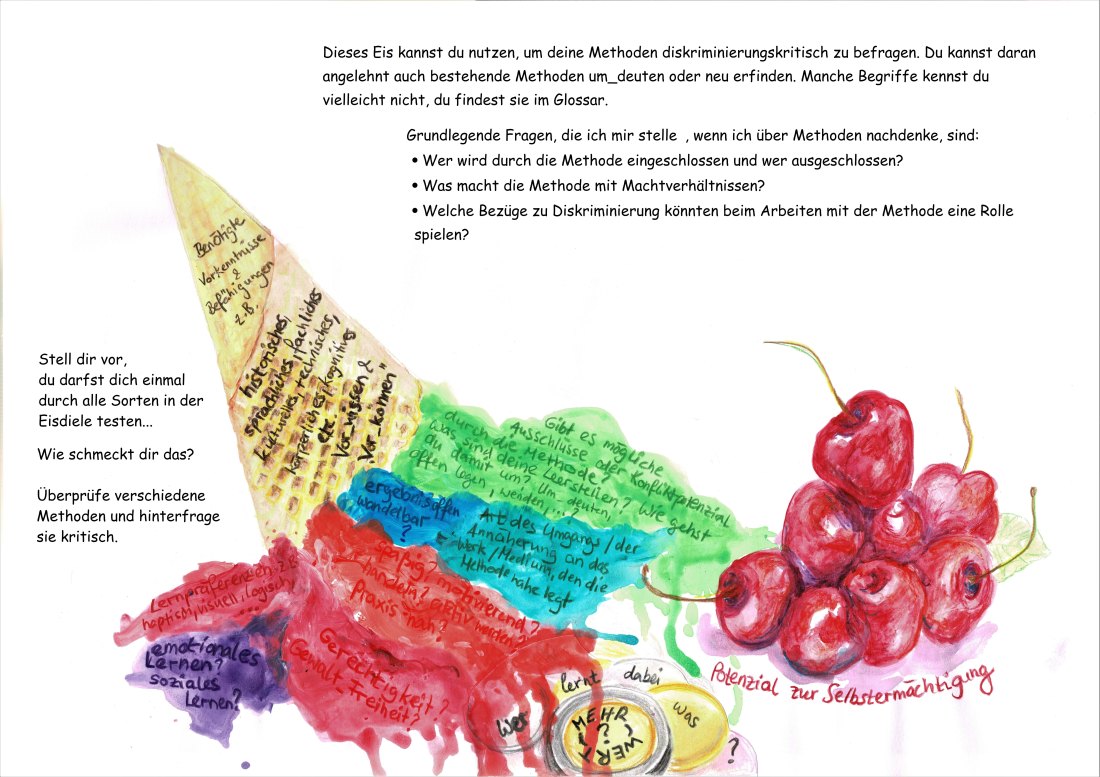 Dieses Eis kannst du nutzen, um deine Methoden diskriminierungskritisch zu befragen. Du kannst daran
angelehnt auch bestehende Methoden um_deuten oder neu erfinden. Manche Begriffe kennst du
vielleicht nicht, du findest sie im Glossar.
Grundlegende Fragen, die ich mir stelle , wenn ich über Methoden nachdenke, sind:
• Wer wird durch die Methode eingeschlossen und wer ausgeschlossen?
• Was macht die Methode mit Machtverhältnissen?
• Welche Bezüge zu Diskriminierung könnten beim Arbeiten mit der Methode eine Rolle
spielen?
Benötigte
Vorkenntnisse
&
Befähigungen
z.B.
historisches,
sprachliches, fachliches
kulturelles, technisches,
körperliches, kognitives
etc.
Vor_wissen &
Vor_können"
Stell dir vor,
du darfst dich einmal
durch alle Sorten in der
Eisdiele testen...
Wie schmeckt dir das?
Überprüfe verschiedene
Methoden und hinterfrage
sie kritisch.
Gibt es mögliche
Ausschlüsse oder Konfliktpotenzial
durch die Methode?
Was sind deine Leerstellen? Wie gehst
du damit um? Um_deuten,
offen legen, wenden,...?
ergebnisoffen
wandelbar
?
Art des Umgangs / der
Annäherung an das
Werk / Medium, den die
Methode nahe legt
motivierend?
handeln? aktiv werden?
Praxis nah?
Lernpräferenzen z.B.
haptisch, visuell, logisch,
...
emotionales
Lernen?
soziales
Lernen?
Gerechtigkeit?
Gewalt_Freiheit?
Wer
lernt
dabei
was
?
MEHR
? ?
WERT
Potenzial zur Selbstermächtigung